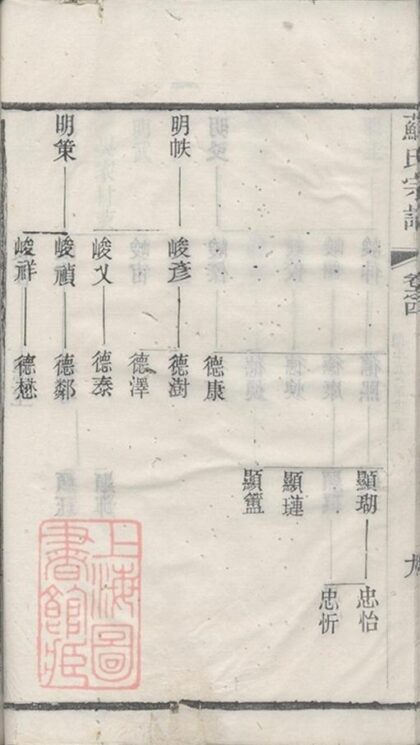 蘇氏宗譜
卷之四
九
顯瑚 忠怡
忠忻
顯璉
顯簠
德康
明帙 峻彥 德澍
德澤
峻乂 德泰
明策 峻禎 德鄰
峻祥 德懋
上海圖
書館藏